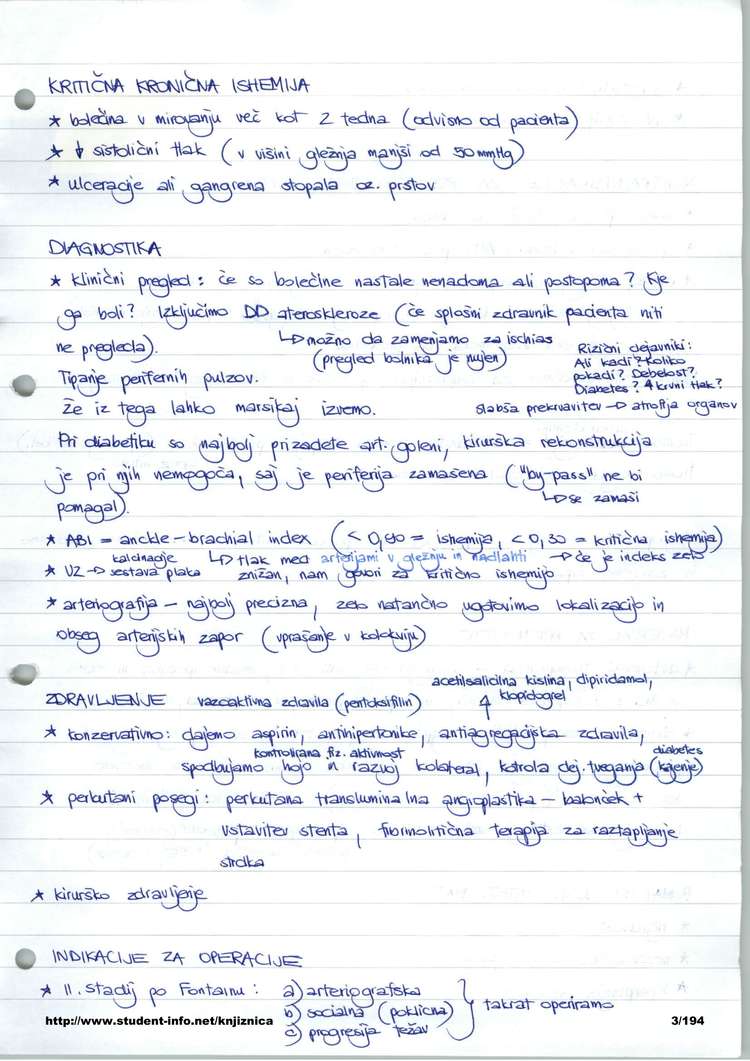 KRITIČNA KRONIČNA ISHEMIJA
* bolečina v mirovanju več kot 2 tedna (odvisno od pacienta)
* ↓ sistolični tlak (v višini gležnja manjši od 50 mmHg)
* ulceracije ali gangrena stopala oz. prstov
DIAGNOSTIKA
* klinični pregled: če so bolečine nastale nenadoma ali postopoma? Kje
ga boli? Izključimo DD ateroskleroze (če splošni zdravnik pacienta niti
ne pregleda).
↳ možno da zamenjamo za ischias
(pregled bolnika je nujen)
Rizični dejavniki:
Ali kadi? Koliko
pokadi? Debelost?
Diabetes? ↑ krvni tlak?
Tipanje perifernih pulzov.
Že iz tega lahko marsikaj izvemo.
slabša prekrvavitev → atrofija organov
Pri diabetiku so najbolj prizadete art. goleni, kirurška rekonstrukcija
je pri njih nemogoča, saj je periferija zamašena ("by-pass" ne bi
pomagal).
↳ se zamaši
* ABI = anckle-brachial index (< 0,90 = ishemija, < 0,30 = kritična ishemija)
↳ tlak med arterijami v gležnju in nadlahti → če je indeks zelo
znižan, nam govori za kritično ishemijo
kalcinacije
* UZ → sestava plaka
* arteriografija – najbolj precizna, zelo natančno ugotovimo lokalizacijo in
obseg arterijskih zapor (vprašanje v kolokviju)
acetilsalicilna kislina, dipiridamol,
klopidogrel
ZDRAVLJENJE vazoaktivna zdravila (pentoksifilin)
* konzervativno: dajemo aspirin, antihipertonike, antiagregacijska zdravila,
kontrolirana fiz. aktivnost
diabetes
spodbujamo hojo in razvoj kolateral, kotrola dej. tveganja (kajenje)
* perkutani posegi: perkutana transluminalna angioplastika – balonček +
vstavitev stenta, fibrinolitična terapija za raztapljanje
strdka
* kirurško zdravljenje
INDIKACIJE ZA OPERACIJE
* II. stadij po Fontainu: a) arteriografska
b) socialna (poklicna)
c) progresija težav
takrat operiramo
http://www.student-info.net/knjiznica
3/194